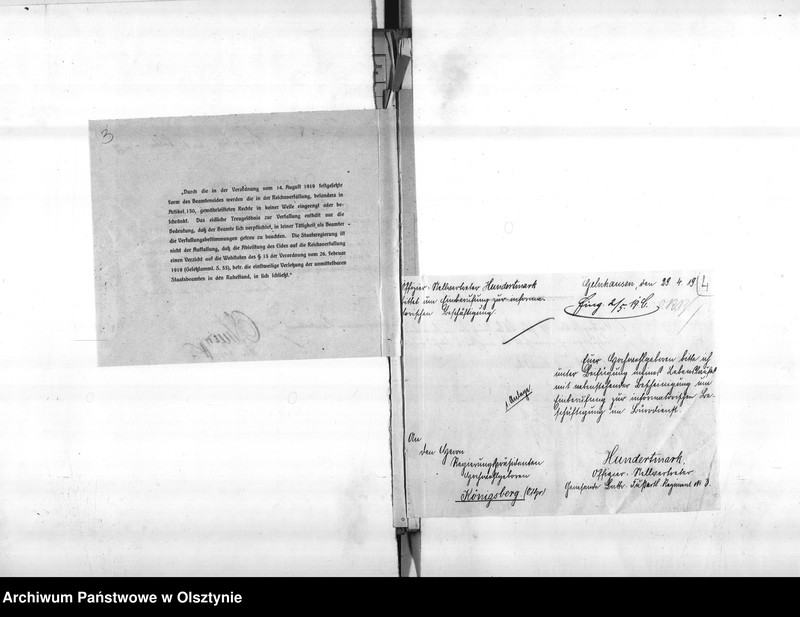 3
„Durch die in der Verordnung vom 14. August 1919 festgesetzte
Form des Beamteneides werden die in der Reichsverfassung, besonders in
Artikel 130, gewährleisteten Rechte in keiner Weise eingeengt oder be-
schränkt. Das eidliche Treugelöbnis zur Verfassung enthält nur die
Bedeutung, daß der Beamte sich verpflichtet, in seiner Tätigkeit als Beamter
die Verfassungsbestimmungen getreu zu beachten. Die Staatsregierung ist
nicht der Auffassung, daß die Ableistung des Eides auf die Reichsverfassung
einen Verzicht auf die Wohltaten des § 15 der Verordnung vom 26. Februar
1919 (Gesetzsamml. S. 33), betr. die einstweilige Versetzung der unmittelbaren
Staatsbeamten in den Ruhestand, in sich schließt.“
Offizier-Stellvertreter Hundertmark
bittet um Einberufung zur informa-
torischen Beschäftigung.
Gelnhausen, den 23 4. 19
4
Euer Hochwohlgeboren bitte ich
unter Beifügung meines Lebenslaufes
mit nebenstehender Bescheinigung um
Einberufung zur informatorischen Be-
schäftigung im Bürodienst.
1 Anlage
An
den Herrn
Regierungspräsidenten
Hochwohlgeboren
Königsberg (Ostpr)
Hundertmark.
Offizier-Stellvertreter
Fußartl. Regiment Nr 3.
Archiwum Państwowe w Olsztynie